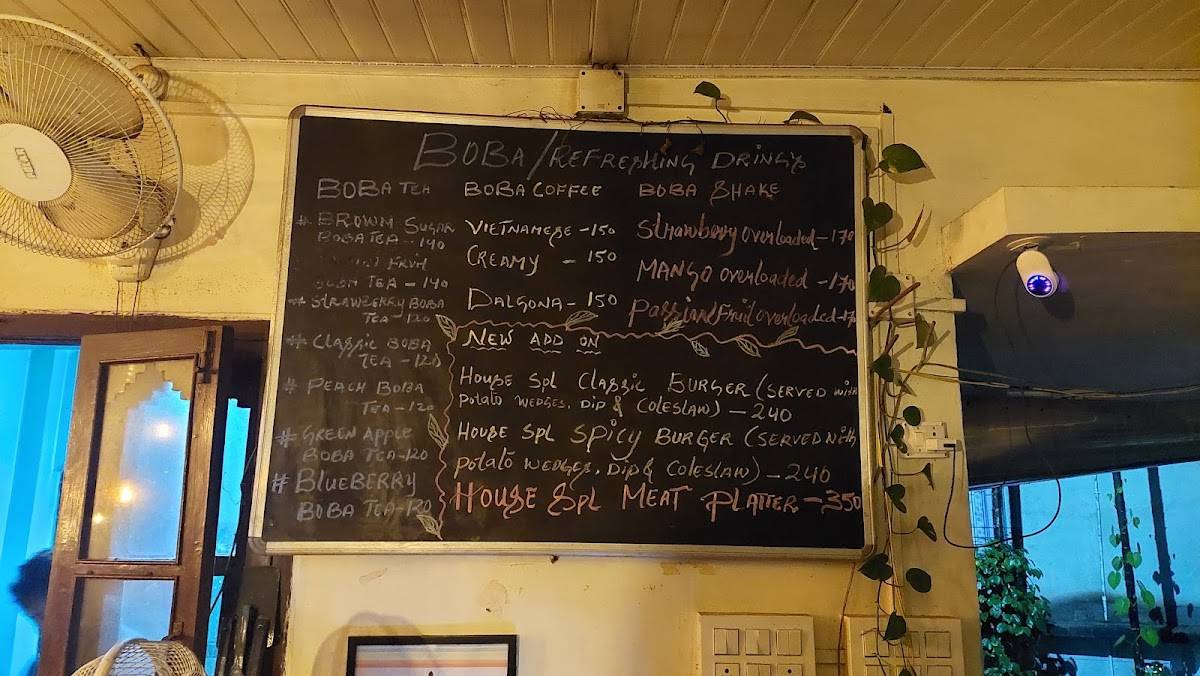 BOBA/REFRESHING DRINGS
BOBA TEA
# BROWN SUGAR
BOBA TEA - 140
TEA - 140
# STRAWBERRY BOBA
TEA - 120
# CLASSIC BOBA
TEA - 120
# PEACH BOBA
TEA - 120
# GREEN APPLE
BOBA TEA - 120
# BLUEBERRY
BOBA TEA - 120
BOBA COFFEE
VIETNAMESE - 150
CREAMY - 150
DALGONA - 150
BOBA SHAKE
Strawberry overloaded - 170
MANGO overloaded - 170
overloaded
NEW ADD ON
HOUSE SPL CLASSIC BURGER (SERVED with
potato WEDGES, DIP & COLESLAW) - 240
HOUSE SPL SPICY BURGER (SERVED with
potato WEDGES, DIP & COLESLAW) - 240
HOUSE SPL MEAT PLATTER - 350